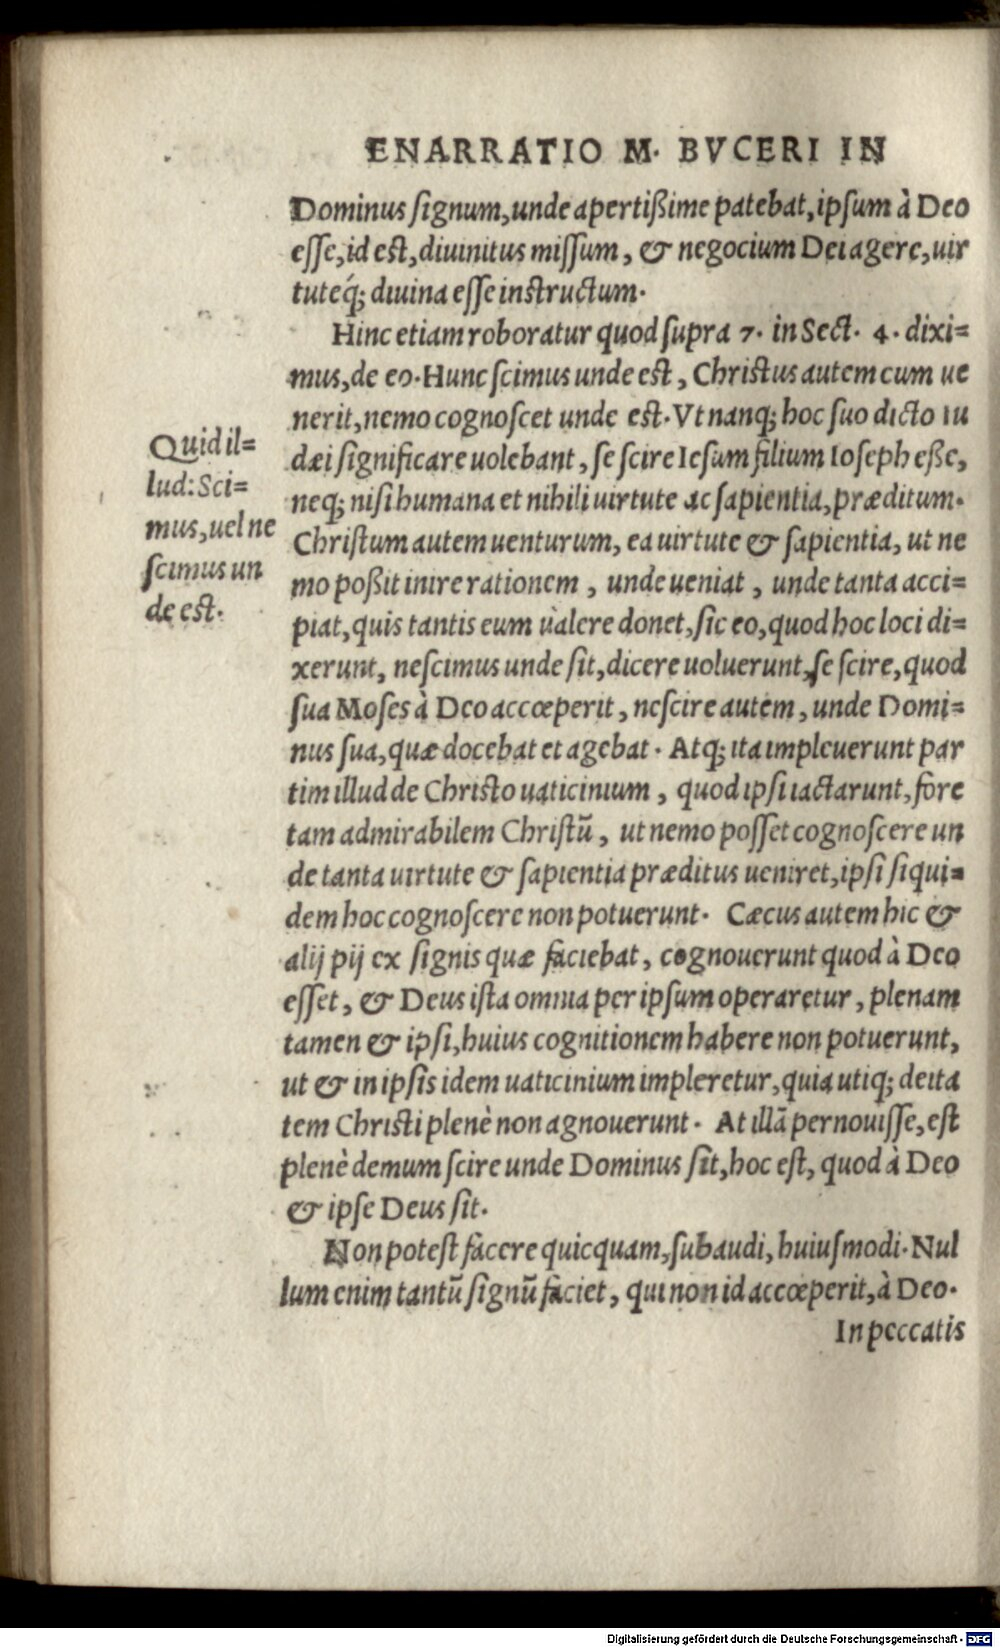 ENARRATIO M. BVCERI IN
Dominus ſignum, unde apertißime patebat, ipſum à Deo
eſſe, id eſt, diuinitus miſſum, & negocium Dei agere, uir
tuteq́; diuina eſſe inſtructum.
Hinc etiam roboratur quod ſupra 7. in Sect. 4. dixi=
mus, de eo. Hunc ſcimus unde eſt, Chriſtus autem cum ue
nerit, nemo cognoſcet unde eſt. Vt nanq; hoc ſuo dicto iu
dæi ſignificare uolebant, ſe ſcire Ieſum filium Ioſeph eße,
neq; niſi humana et nihili uirtute ac ſapientia, præditum.
Chriſtum autem uenturum, ea uirtute & ſapientia, ut ne
mo poßit inire rationem, unde ueniat, unde tanta acci=
piat, quis tantis eum ualere donet, ſic eo, quod hoc loci di=
xerunt, neſcimus unde ſit, dicere uoluerunt, ſe ſcire, quod
ſua Moſes à Deo accœperit, neſcire autem, unde Domi=
nus ſua, quæ docebat et agebat. Atq; ita impleuerunt par
tim illud de Chriſto uaticinium, quod ipſi iactarunt, fore
tam admirabilem Chriſtũ, ut nemo poſſet cognoſcere un
de tanta uirtute & ſapientia præditus ueniret, ipſi ſiqui=
dem hoc cognoſcere non potuerunt. Cæcus autem hic &
alij pij ex ſignis quæ faciebat, cognouerunt quod à Deo
eſſet, & Deus iſta omnia per ipſum operaretur, plenam
tamen & ipſi, huius cognitionem habere non potuerunt,
ut & in ipſis idem uaticinium impleretur, quia utiq; deita
tem Chriſti plenè non agnouerunt. At illã pernouiſſe, eſt
plenè demum ſcire unde Dominus ſit, hoc eſt, quod à Deo
& ipſe Deus ſit.
Non poteſt facere quicquam, ſubaudi, huiuſmodi. Nul
lum enim tantũ ſignũ faciet, qui non id accœperit, à Deo.
In peccatis
Quid il=
lud: Sci=
mus, uel ne
ſcimus un
de eſt.
Digitalisierung gefördert durch die Deutsche Forschungsgemeinschaft - DFG